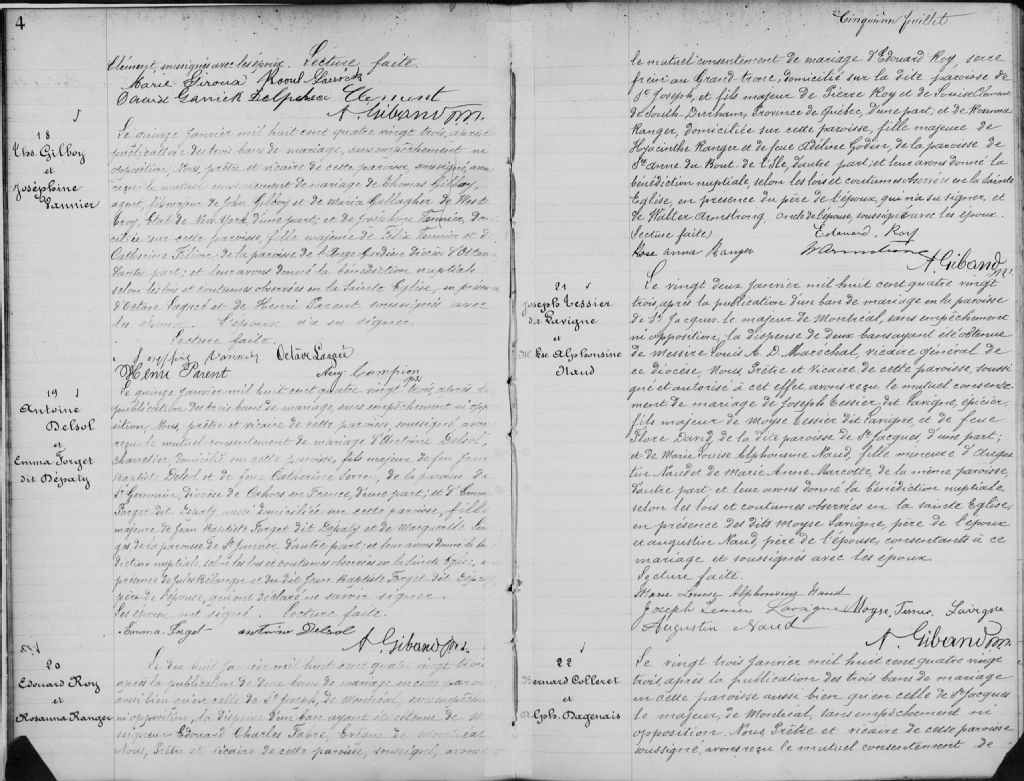 4
Clément, soussignés avec les époux. Lecture faite.
Marie Giroux Raoul Garrick
Louise Garrick Delphice Clement
A. Giband ptre.
18
Ths. Gilboy
et
Joséphine
Vannier
Le quinze janvier mil huit cent quatre vingt trois, après la
publication des trois bans de mariage, sans empêchement ni
opposition, Nous, prêtre et vicaire de cette paroisse, soussigné, avons
reçu le mutuel consentement de mariage de Thomas Gilboy,
agent, fils majeur de John Gilboy et de Maria Gallagher de West
Troy, Etat de New York, d'une part; et de Joséphine Vannier, do-
ciliée sur cette paroisse, fille majeure de Félix Vannier et de
Catherine Filion, de la paroisse de l'Ange Gardien diocèse d'Ottawa
d'autre part; et leur avons donné la bénédiction nuptiale
selon les lois et coutumes observées en la Sainte Eglise, en présence
d'Octave Lagacé et de Henri Parent soussignés avec
les époux. L'époux n'a su signer.
Lecture faite.
Josephine Vannier Octave Lagacé
Henri Parent Aug. Campion
ptre
19
Antoine
Delsol
et
Emma Forget
dit Dépaty
Le quinze janvier mil huit cent quatre vingt trois, après la
publication des trois bans de mariage, sans empêchement ni oppo-
sition, Nus, prêtre et vicaire de cette paroisse, soussigné avons
reçu le mutuel consentement de mariage d'Antoine Delsol,
charretier, domicilié sur cette paroisse, fils majeur de feu Jean
Baptiste Delsol et de feue Catherine Serres, de la paroisse de
St Germain, diocèse de Cahors en France, d'une part; et d'Emma
Forget dit Depaty aussi domiciliée sur cette paroisse, fille
majeure de Jean Baptiste Forget dit Depaty et de Marguerite
de la paroisse de St Janvier, d'autre part; et leur avons donné la béné-
diction nuptiale selon les lois et coutumes observées en la Sainte Eglise, en
présence de Jules Bélanger et du dit Jean Baptiste Forget dit Depaty
père de l'épouse, qui ont déclaré ne savoir signer.
Les époux ont signé. Lecture faite.
Emma Forget antoine Delsol
A. Giband ptre.
20
Edouard Roy
et
Rosanna Ranger
Le dix huit janvier mil huit cent quatre vingt trois
après la publication de deux bans de mariage en cette paroisse
aussi bien qu'en celle de St Joseph, de Montréal, sans empêche-
ni opposition, la dispense d'un ban ayant été obtenue de Mon-
seigneur Edouard Charles Fabre, Evêque de Montréal
Nous, Prêtre et vicaire de cette paroisse, soussigné, avons
Cinquième feuillet
le mutuel consentement de mariage d'Edouard Roy, serre
frein au Grand tronc, domicilié sur la dite paroisse de
St Joseph, et fils majeur de Pierre Roy et de Louise Clément
de South-Durham, Province de Québec, d'une part; et de Rosanna
Ranger, domiciliée sur cette paroisse, fille majeure de
Hyacinthe Ranger et de feue Adéline Godin, de la paroisse de
Ste Anne du Bout de l'Ile, d'autre part; et leur avons donné la
bénédiction nuptiale, selon les lois et coutumes observées en la Sainte
Eglise, en présence du père de l'époux, qui n'a su signer, et
de Walter Armstrong, oncle de l'épouse, soussigné avec les époux.
(Lecture faite) Edouard Roy
Rose anna Ranger W Armstrong
A. Giband
ptre.
21
Joseph Tessier
dit Lavigne
et
M. Lse Alphonsine
Naud
Le vingt deux janvier mil huit cent quatre vingt
trois, après la publication d'un ban de mariage en la paroisse
de St Jacques le majeur de Montréal, sans empêchement
ni opposition, la dispense de deux bans ayant été obtenue
de messire Louis A. D. Marechal, vicaire général de
ce diocèse, Nous, Prêtre et Vicaire de cette paroisse, soussi-
gné et autorisé à cet effet, avons reçu le mutuel consente-
ment de mariage de Joseph Tessier dit Lavigne, épicier,
fils majeur de Moyse Tessier dit Lavigne et de feue
Flore David, de la dite paroisse de St Jacques, d'une part;
et de Marie Louise Alphonsine Naud, fille mineure d'Augus-
tin Naud et de Marie Anne Marcotte, de la même paroisse,
d'autre part; et leur avons donné la bénédiction nuptiale,
selon les lois et coutumes observées en la sainte Eglise,
en présence des dits Moyse Lavigne, père de l'époux
et augustin Naud, père de l'épouse, consentants à ce
mariage et soussignés avec les époux.
Lecture faite.
Marie Louise Alphonsine Naud
Joseph Tessier Lavigne Moyse Tessier Lavigne
Augustin Naud
A. Giband ptre.
22
Bernard Colleret
et
Alph. Dagenais
Le vingt trois janvier mil huit cent quatre vingt
trois après la publication des trois bans de mariage
en cette paroisse aussi bien qu'en celle de St Jacques
le majeur, de Montréal, sans empêchement ni
opposition, Nous, Prêtre et vicaire de cette paroisse
soussigné, avons reçu le mutuel consentement de